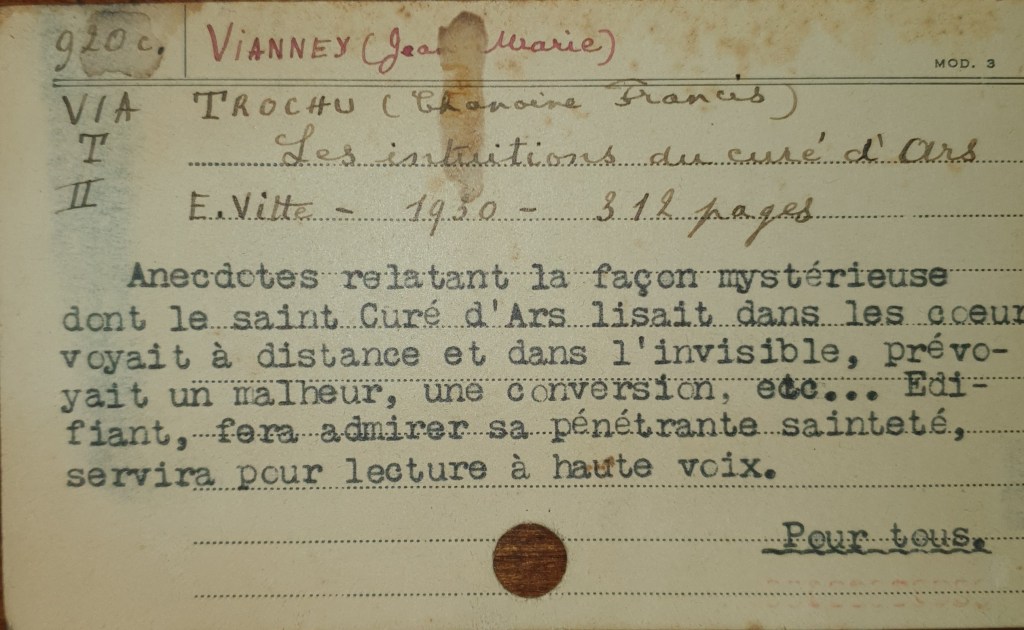 920 c. VIANNEY (Jean Marie)
MOD. 3
VIA TROCHU (Chanoine Francis)
T Les intuitions du curé d'Ars
II E. Vitte - 1930 - 312 pages
Anecdotes relatant la façon mystérieuse
dont le saint Curé d'Ars lisait dans les coeur
voyait à distance et dans l'invisible, prévo-
yait un malheur, une conversion, etc... Edi-
fiant, fera admirer sa pénétrante sainteté,
servira pour lecture à haute voix.
Pour tous.